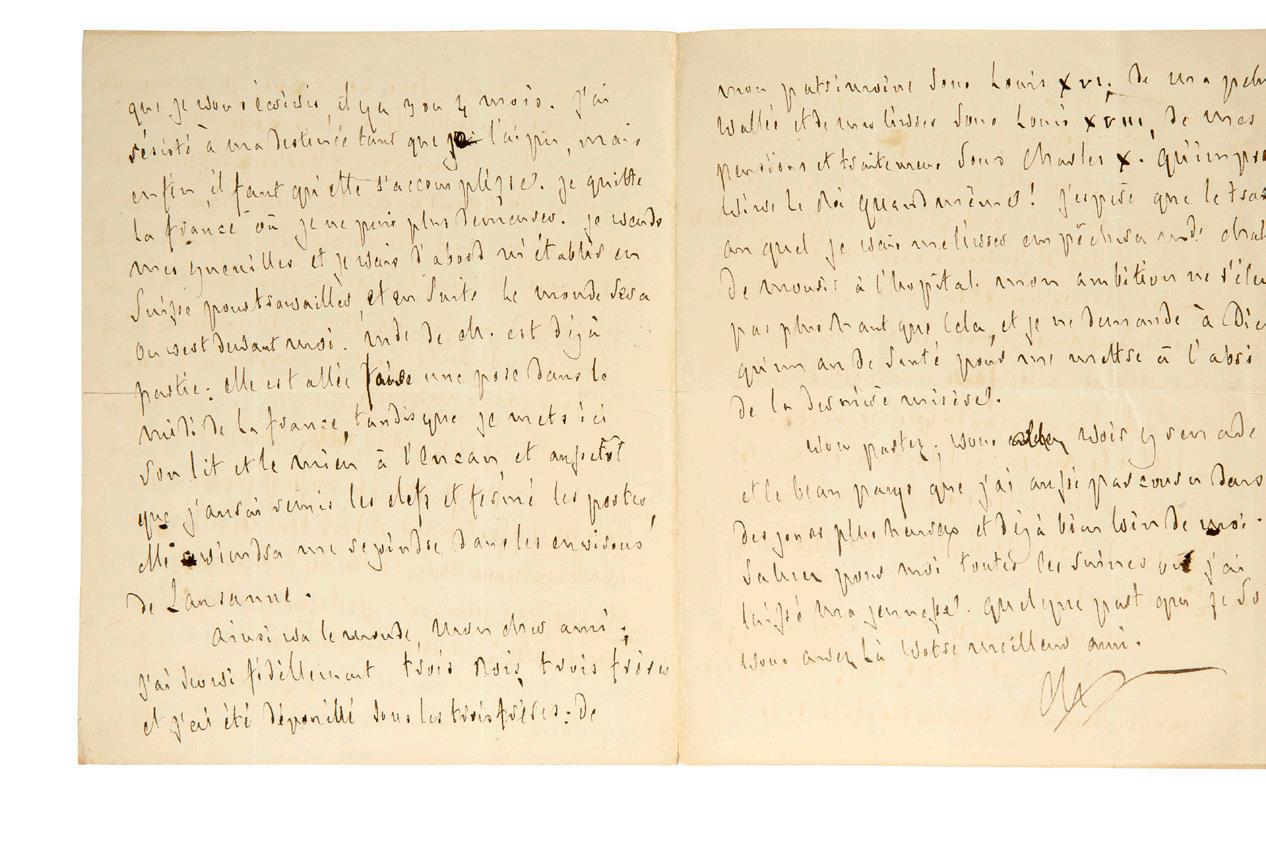 que je vous écrivis il y a 3 ou 4 mois. J'ai
résisté à ma destinée tant que je l'ai pu, mais
enfin il faut qu'elle s'accomplisse. Je quitte
la france où je ne puis plus demeurer. Je vends
mes guenilles et je vais d'abord m'établir en
Suisse pour travailler, et en suite le monde sera
ouvert devant moi. Mde de Ch. est déjà
partie: elle est allée faire une pose dans le
midi de la france, tandis que je mets ici
son lit et le mien à l'encan, et aussitôt
que j'aurai remis les clefs et fermé les portes,
elle viendra me rejoindre dans les environs
de Lausanne.
Ainsi va le monde, mon cher ami;
j'ai servi fidèllement trois Rois, trois frères
et j'ai été dépouillé sous les trois frères: de
mon patrimoine sous Louis XVI; de ma
vallée et de mes livres sous Louis XVIII, de mes
pensions et traitemens sous Charles X. Qu'
vive le Roi quand même! J'espère que le
au quel je vais me livrer empêchera Mde
de mourir à l'hopital. mon ambition ne
pas plus haut que cela, et je ne demande à
qu'un an de santé pour me mettre à l'abri
de la dernière misère.
Vous partez; vous allez voir
et le beau pays que j'ai aussi parcouru dans
des jours plus heureux et déjà bien loin de moi.
Saluez pour moi toutes les ruines où j'ai
laissé ma jeunesse. Quelque part que je
vous avez là votre meilleur ami.
Ch